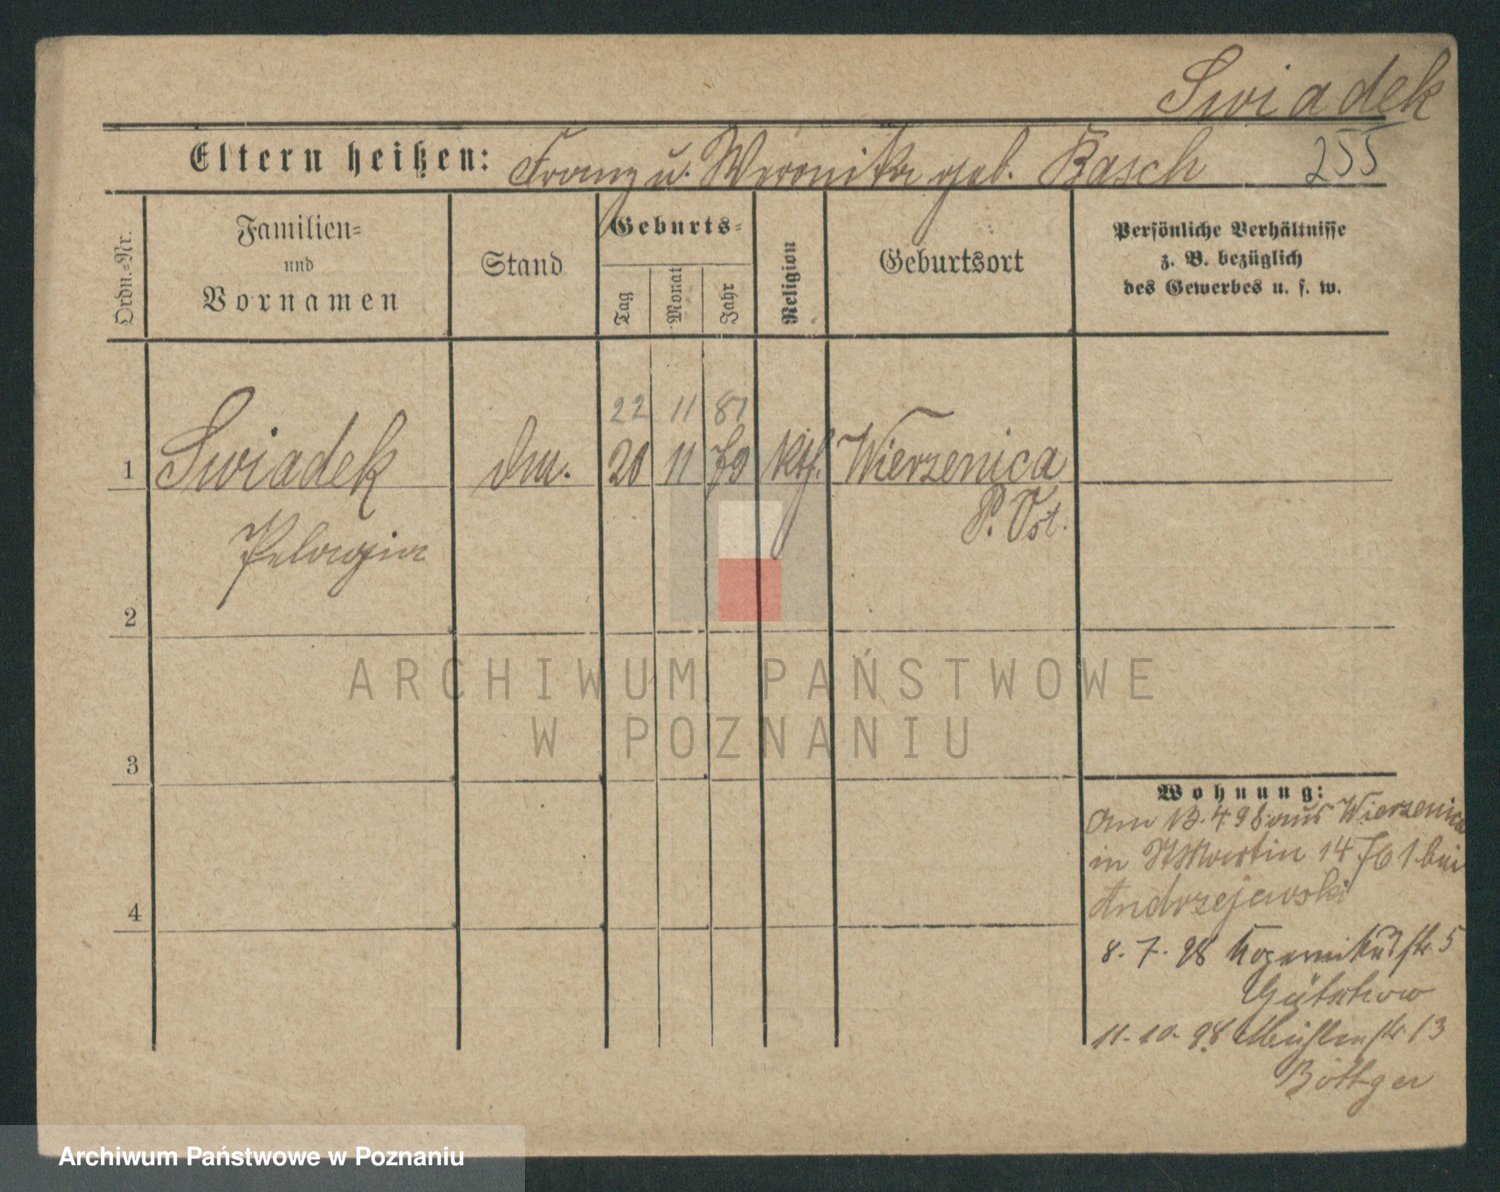 Swiadek
Eltern heißen: Franz u. Weronika geb. Basch 255
Ordn.-Nr.
Familien-
und
Vornamen
Stand
Geburts-
Tag
Monat
Jahr
Religion
Geburtsort
Persönliche Verhältnisse
z. B. bezüglich
des Gewerbes u. s. w.
22 11 81
1 Swiadek 20 11 79 kth. Wierzenica
P. Ost.
Pelagia
2
ARCHIWUM PAŃSTWOWE
W POZNANIU
3
Wohnung:
Am 13.4 98 aus Wierzenica
in St Martin 14 bei
Andrzejewski
4
8. 7. 98 Kopernikusstr. 5
11. 10. 98 Mühlenstr. 13
Böttger
Archiwum Państwowe w Poznaniu